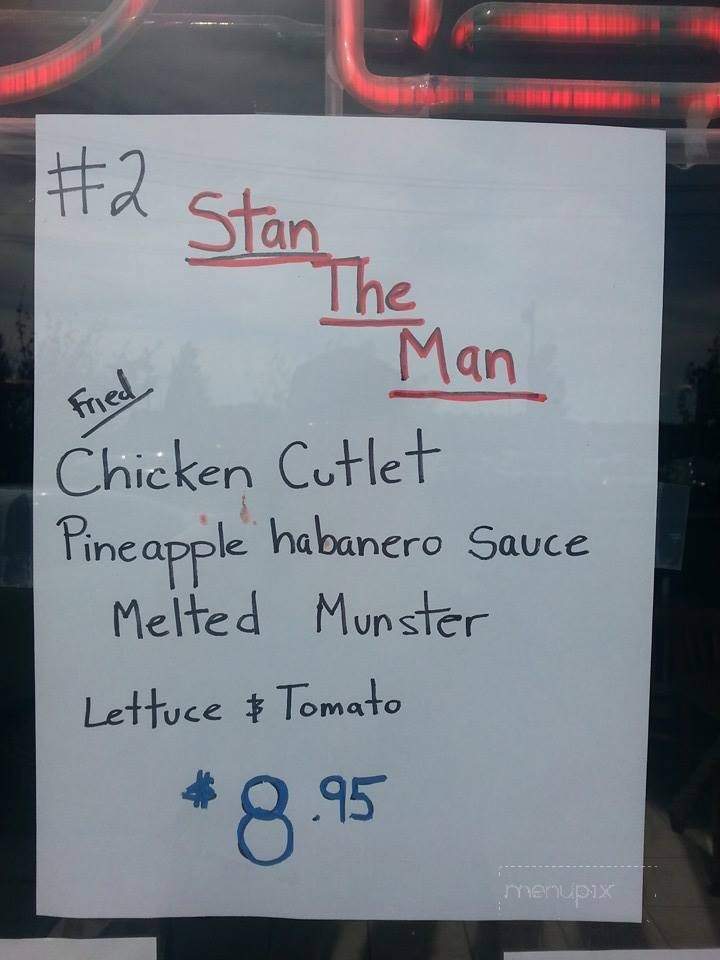 #2
Stan
The
Man
Fried
Chicken Cutlet
Pineapple habanero Sauce
Melted Munster
Lettuce & Tomato
$8.95
menupix